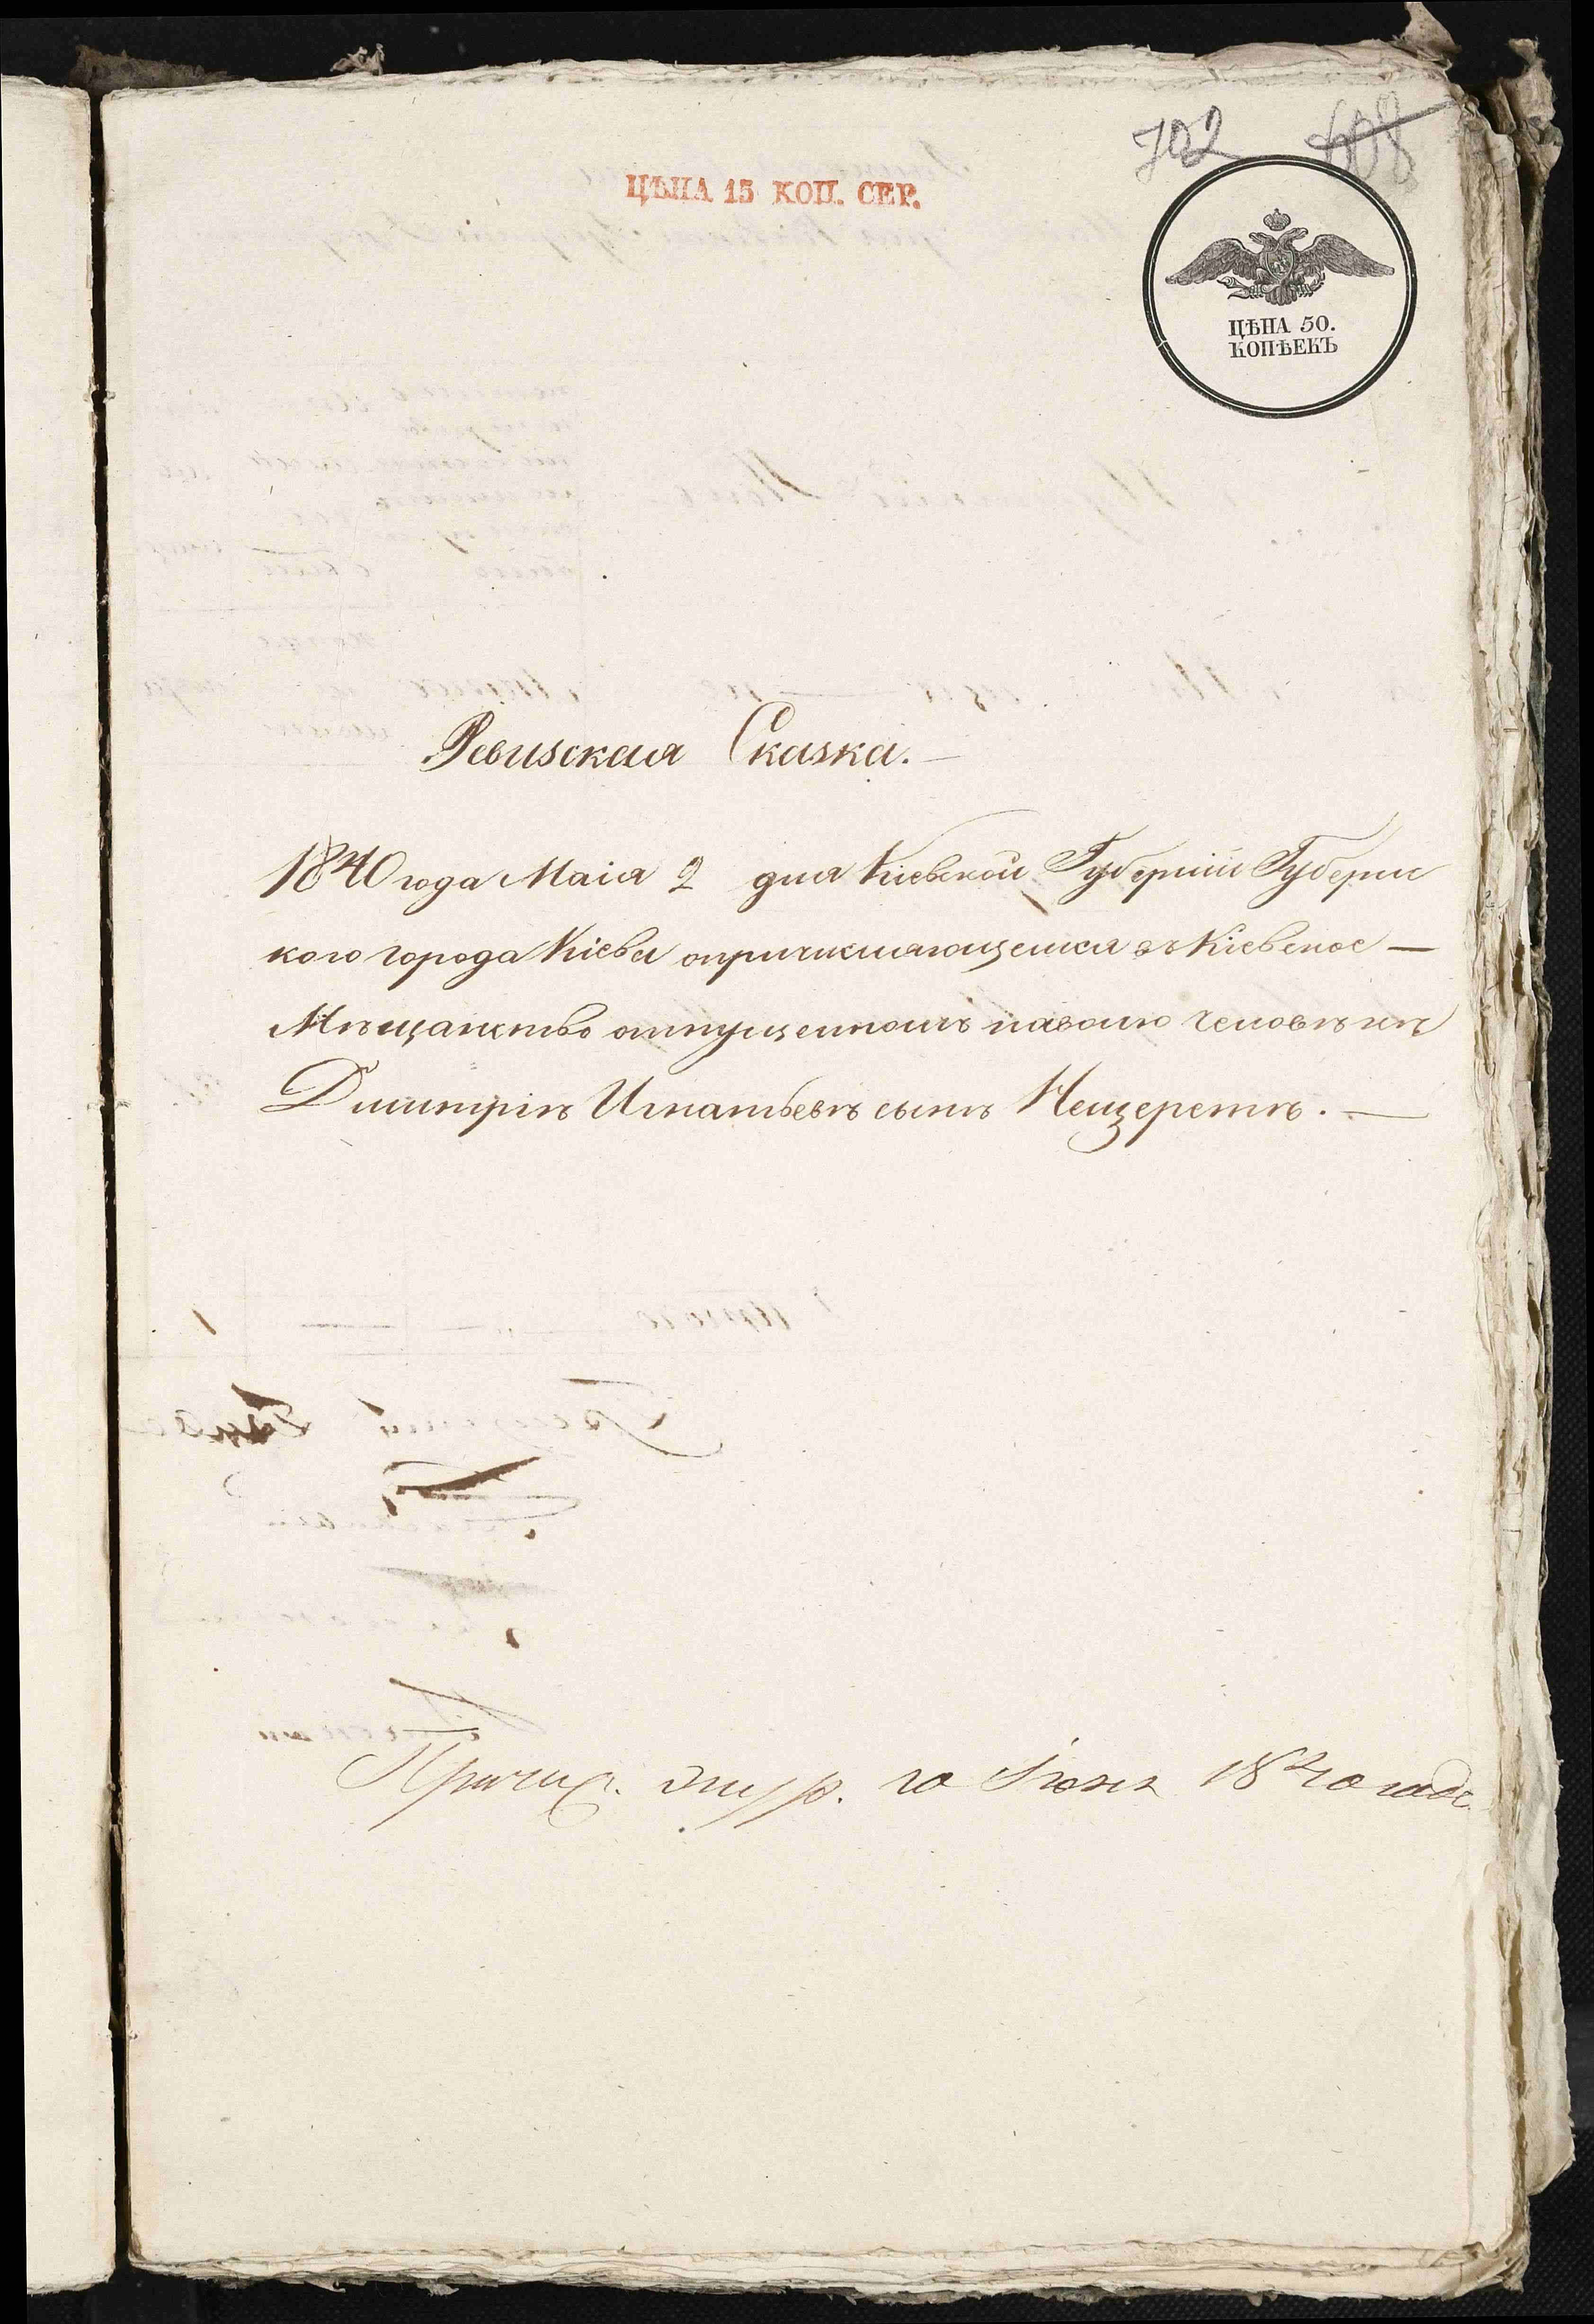 702 608
ЦѢНА 15 КОП. СЕР.
ЦѢНА 50.
КОПѢЕКЪ
Ревизская Сказка.
1840 года Маія 2 дня Кіевской Губерніи Губернс
кого города Кіева опричисляющемся въ Кіевское
Мѣщанство отпущенномъ наволю человѣкѣ
Дмитріѣ Игнатьевѣ сынѣ Нещеретѣ.
Причис. 10 Іюня 1840 года